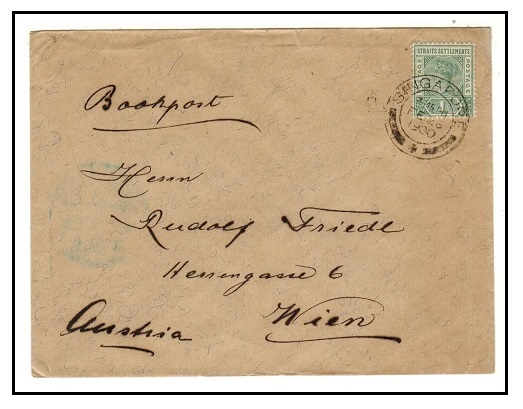 STRAITS SETTLEMENTS
POSTAGE POSTAGE
SINGAPORE
1900
Bookpost
Herrn
Rudolf Friedl
Herrengasse 6
Wien
Austria